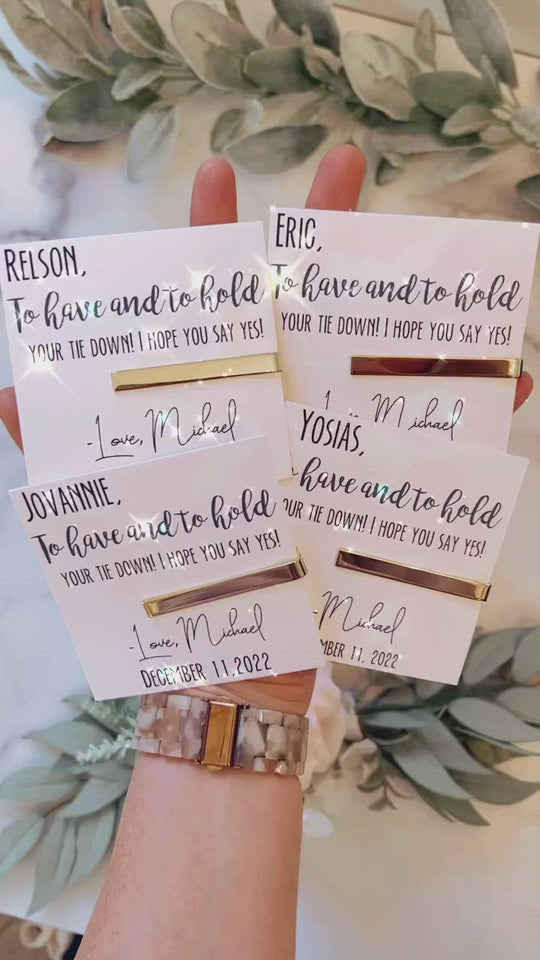 RELSON,
To have and to hold
YOUR TIE DOWN! I HOPE YOU SAY YES!
-Love, Michael
ERIC,
To have and to hold
YOUR TIE DOWN! I HOPE YOU SAY YES!
Michael
JOVANNIE,
To have and to hold
YOUR TIE DOWN! I HOPE YOU SAY YES!
-Love, Michael
DECEMBER 11, 2022
YOSIAS,
have and to hold
OUR TIE DOWN! I HOPE YOU SAY YES!
Michael
MBER 11, 2022